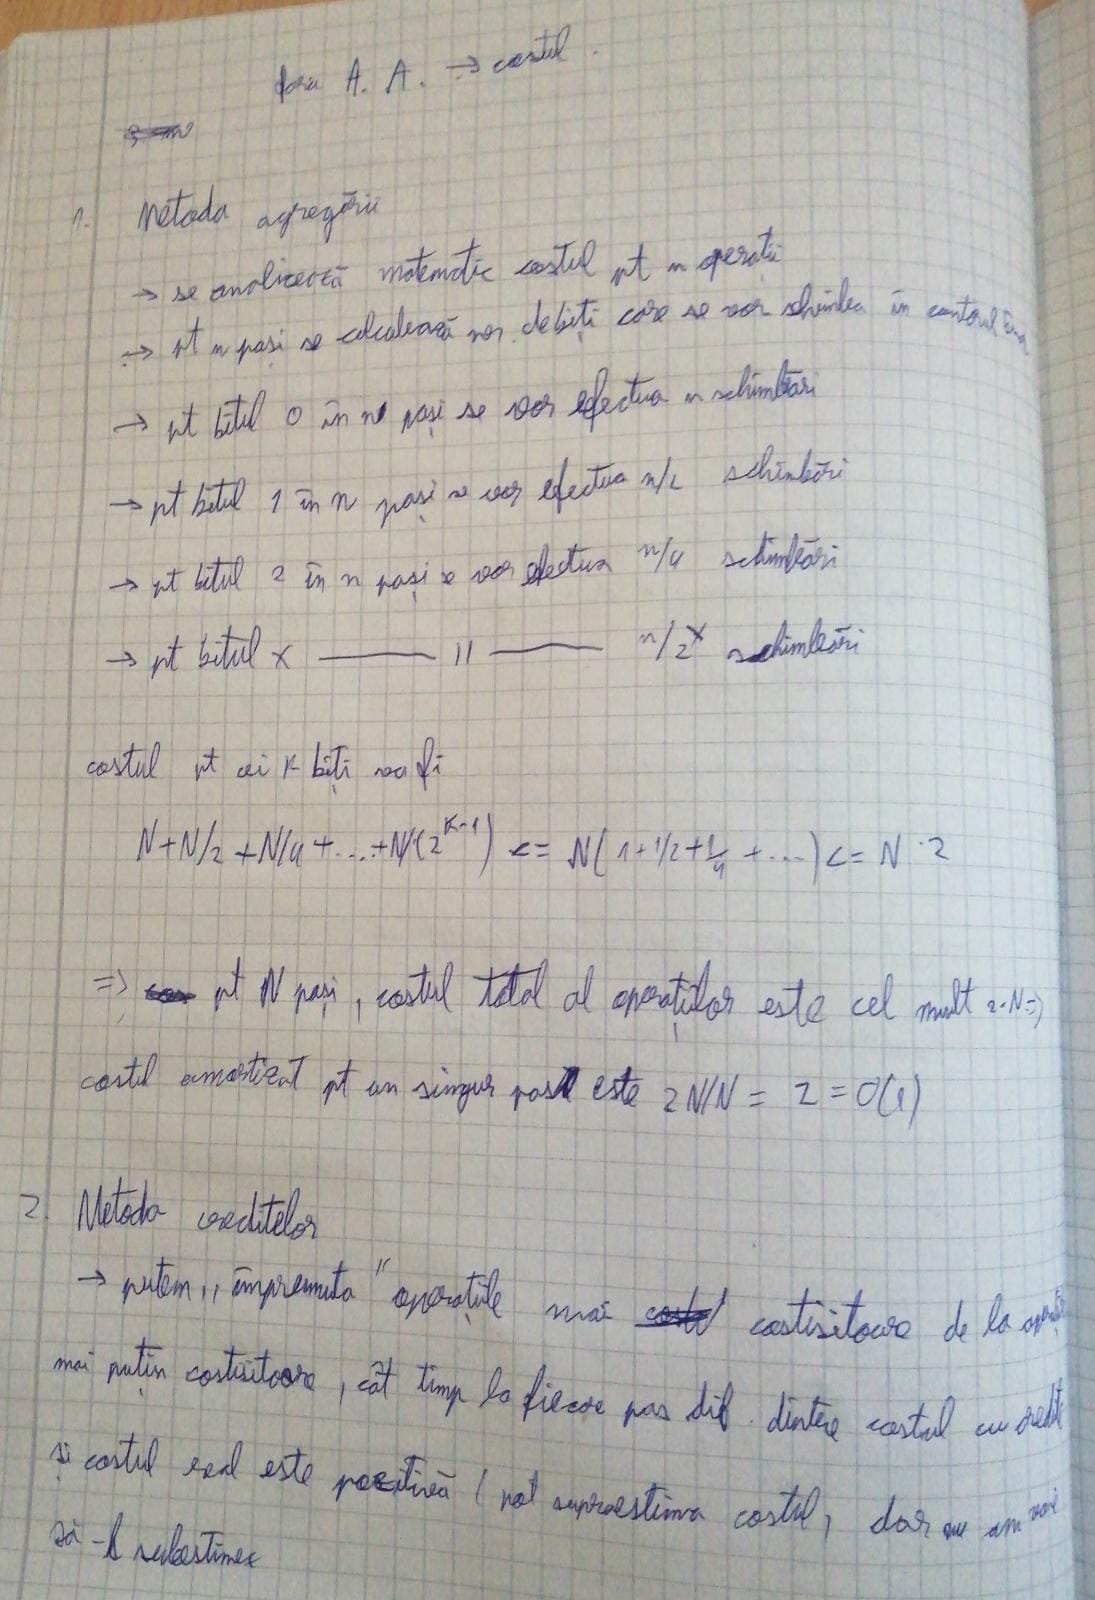 A. A. → costul.
1. Metoda agregării
→ se analizează matematic costul pt n operații
→ pt n pași se calculează nr. de biți care se vor schimba în contorul
→ pt bitul 0 în n pași se vor efectua n schimbări
→ pt bitul 1 în n pași se vor efectua n/2 schimbări
→ pt bitul 2 în n pași se vor efectua n/4 schimbări
→ pt bitul x —— 11 —— n/2^x schimbări
costul pt cei K biți va fi
N+N/2+N/4+...+N/(2^{K-1}) <= N(1+1/2+1/4+...) <= N·2
=> pt N pași, costul total al operațiilor este cel mult 2·N =>
costul amortizat pt un singur pas este 2N/N = 2 = O(1)
2. Metoda creditelor
→ putem „împrumuta" operațiile mai costisitoare de la
mai puțin costisitoare, cât timp la fiecare pas dif. dintre costul cu credit
și costul real este pozitivă (pot supraestima costul, dar nu am voie
să-l subestimez